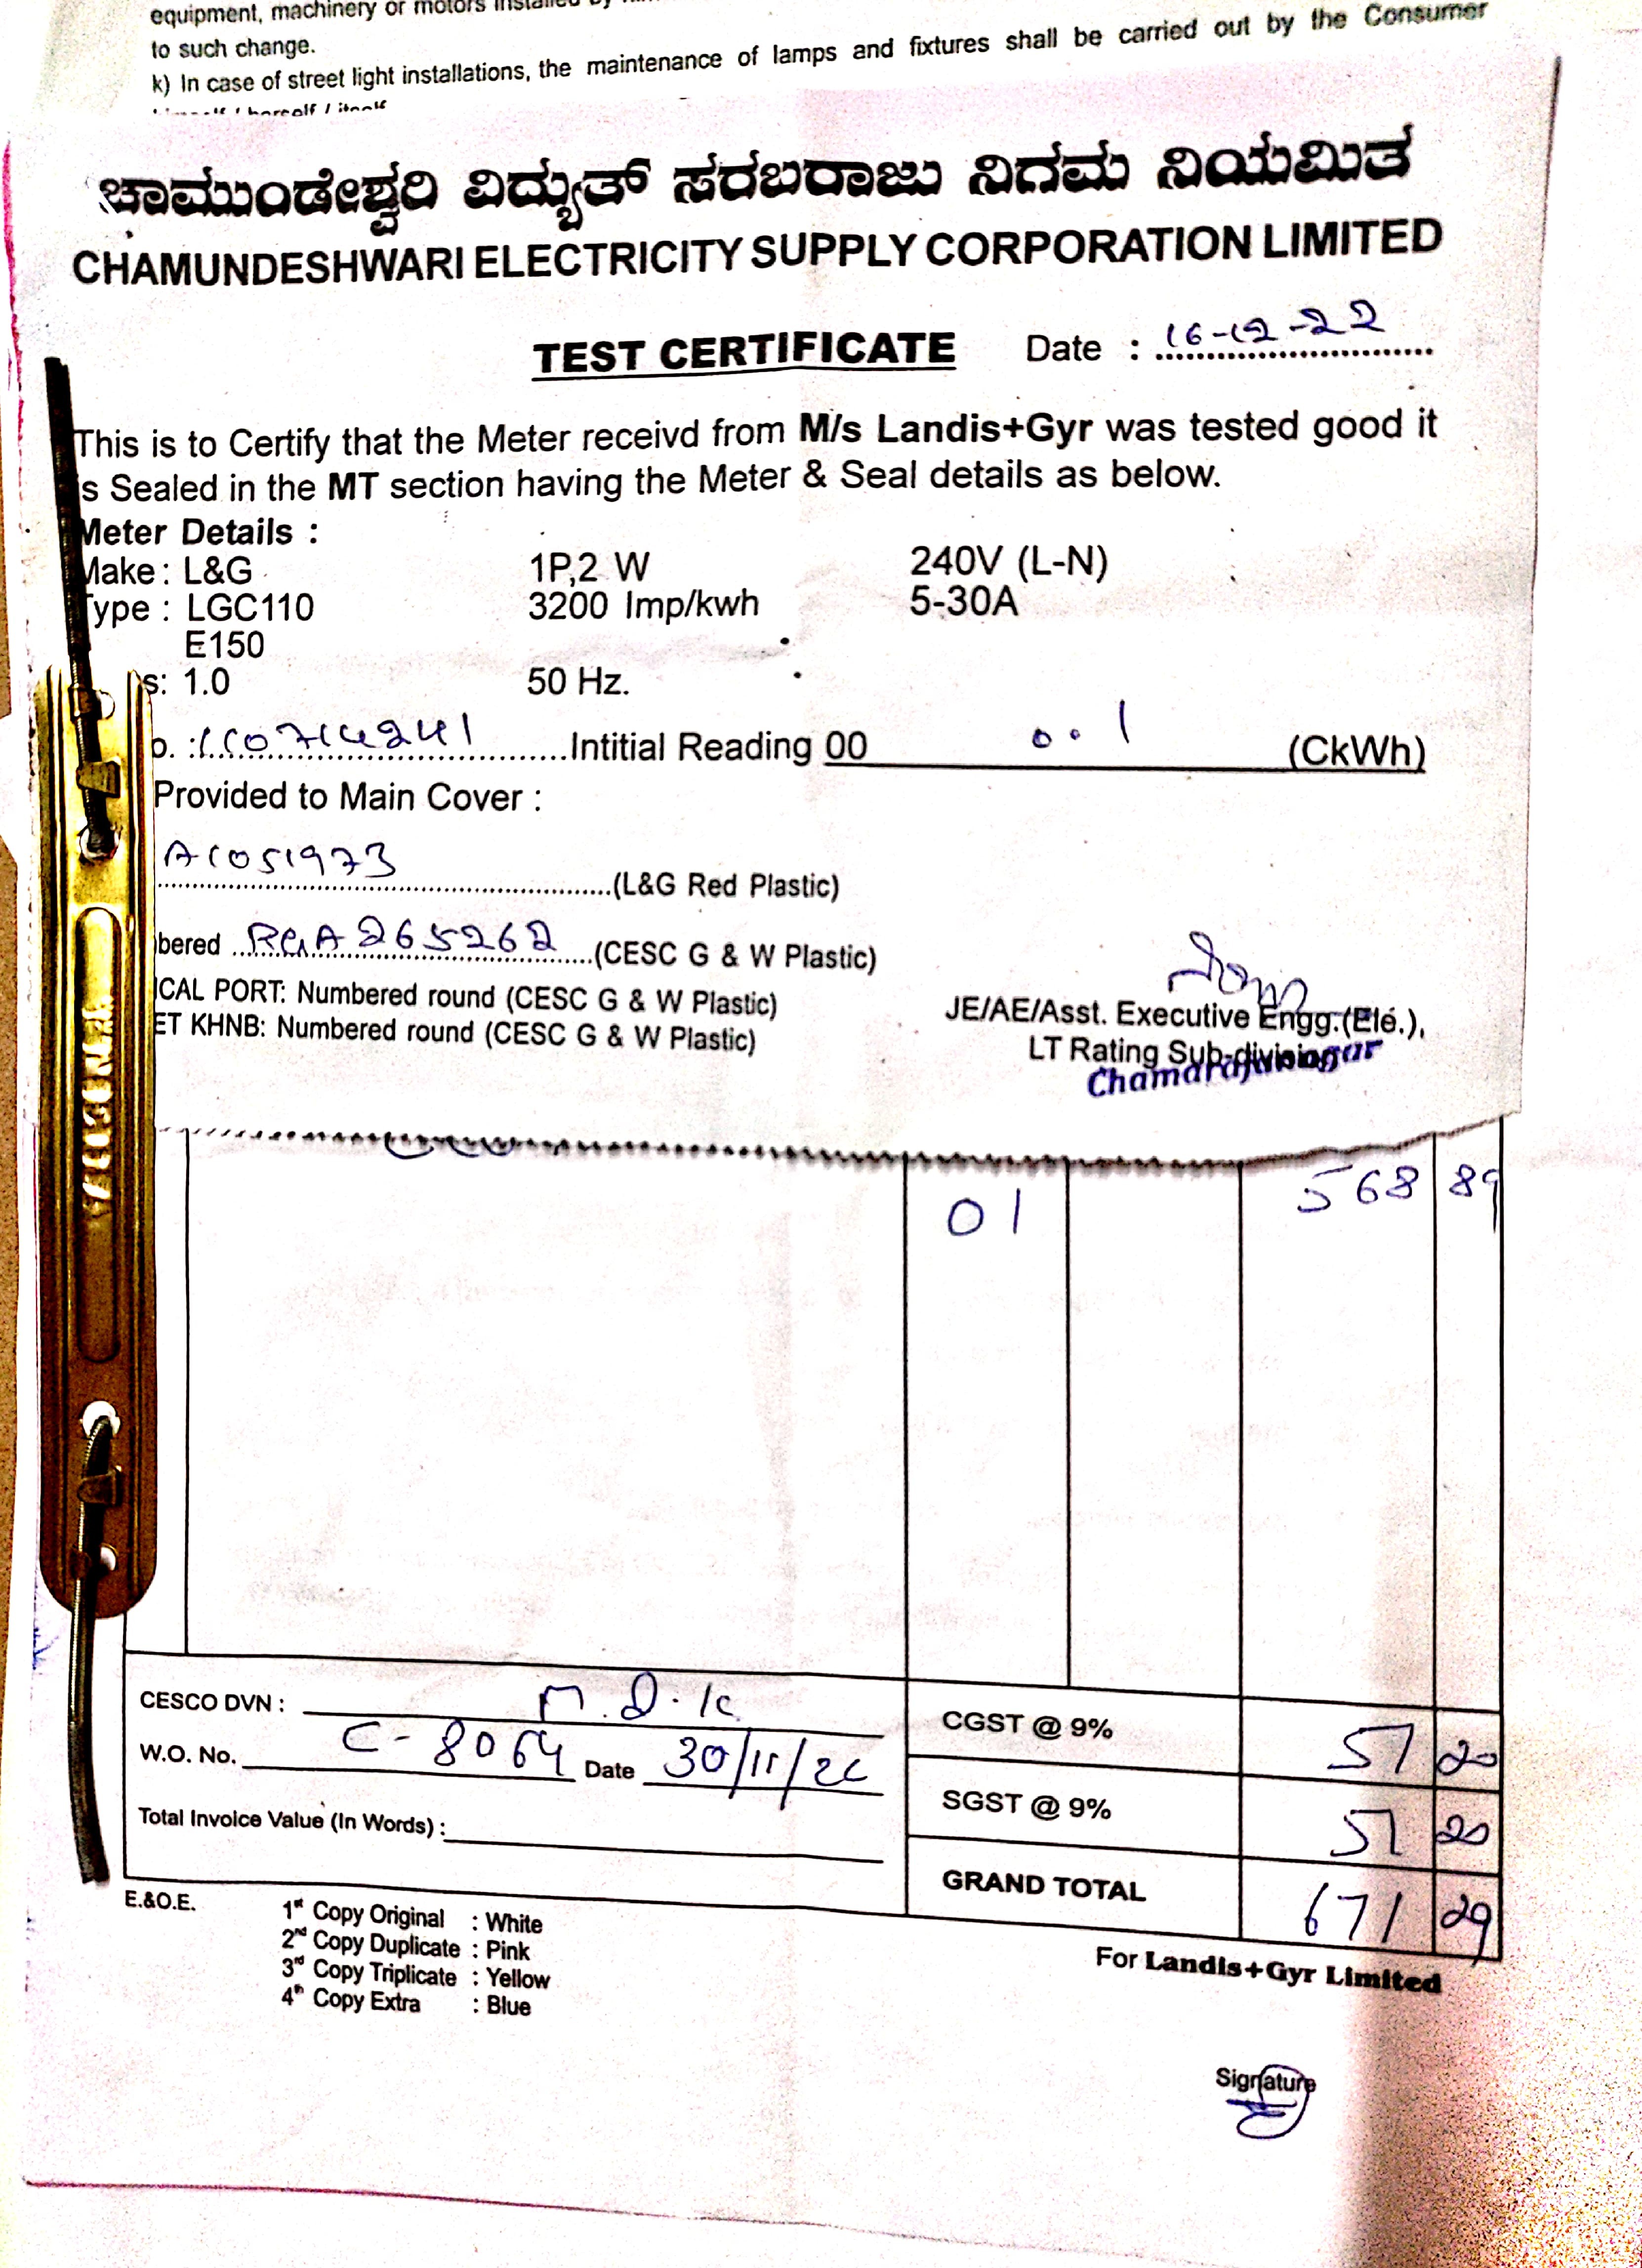 equipment, machinery or motors installed by
to such change.
k) In case of street light installations, the maintenance of lamps and fixtures shall be carried out by the Consumer
ಚಾಮುಂಡೇಶ್ವರಿ ವಿದ್ಯುತ್ ಸರಬರಾಜು ನಿಗಮ ನಿಯಮಿತ
CHAMUNDESHWARI ELECTRICITY SUPPLY CORPORATION LIMITED
TEST CERTIFICATE Date : 16-12-22
This is to Certify that the Meter receivd from M/s Landis+Gyr was tested good it
is Sealed in the MT section having the Meter & Seal details as below.
Meter Details :
Make : L&G 1P,2 W 240V (L-N)
Type : LGC110 3200 Imp/kwh 5-30A
E150
s: 1.0 50 Hz.
o. : Intitial Reading 00 0.1 (CkWh)
Provided to Main Cover :
A1051973 (L&G Red Plastic)
bered RGA265262 (CESC G & W Plastic)
ICAL PORT: Numbered round (CESC G & W Plastic)
ET KHNB: Numbered round (CESC G & W Plastic)
JE/AE/Asst. Executive Engg.(Ele.),
LT Rating Sub-division
Chamarajanagar
01 568 89
CESCO DVN :
W.O. No. C-8064 Date
Total Invoice Value (In Words) :
CGST @ 9% 51 20
SGST @ 9% 51 20
GRAND TOTAL 671 29
E.&O.E.
1st Copy Original : White
2nd Copy Duplicate : Pink
3rd Copy Triplicate : Yellow
4th Copy Extra : Blue
For Landis+Gyr Limited
Signature